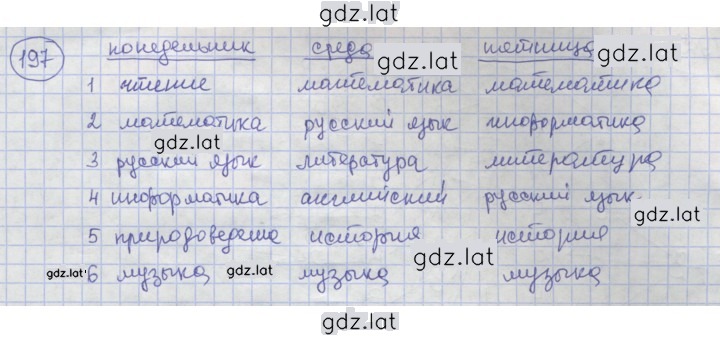 gdz.lat
197 понедельник среда пятница gdz.lat
1 чтение математика математика
2 математика русский язык информатика
gdz.lat
3 русский язык литература литература
4 информатика английский русский язык
gdz.lat
5 природоведение история история
gdz.lat
gdz.lat 6 музыка gdz.lat музыка музыка
gdz.lat